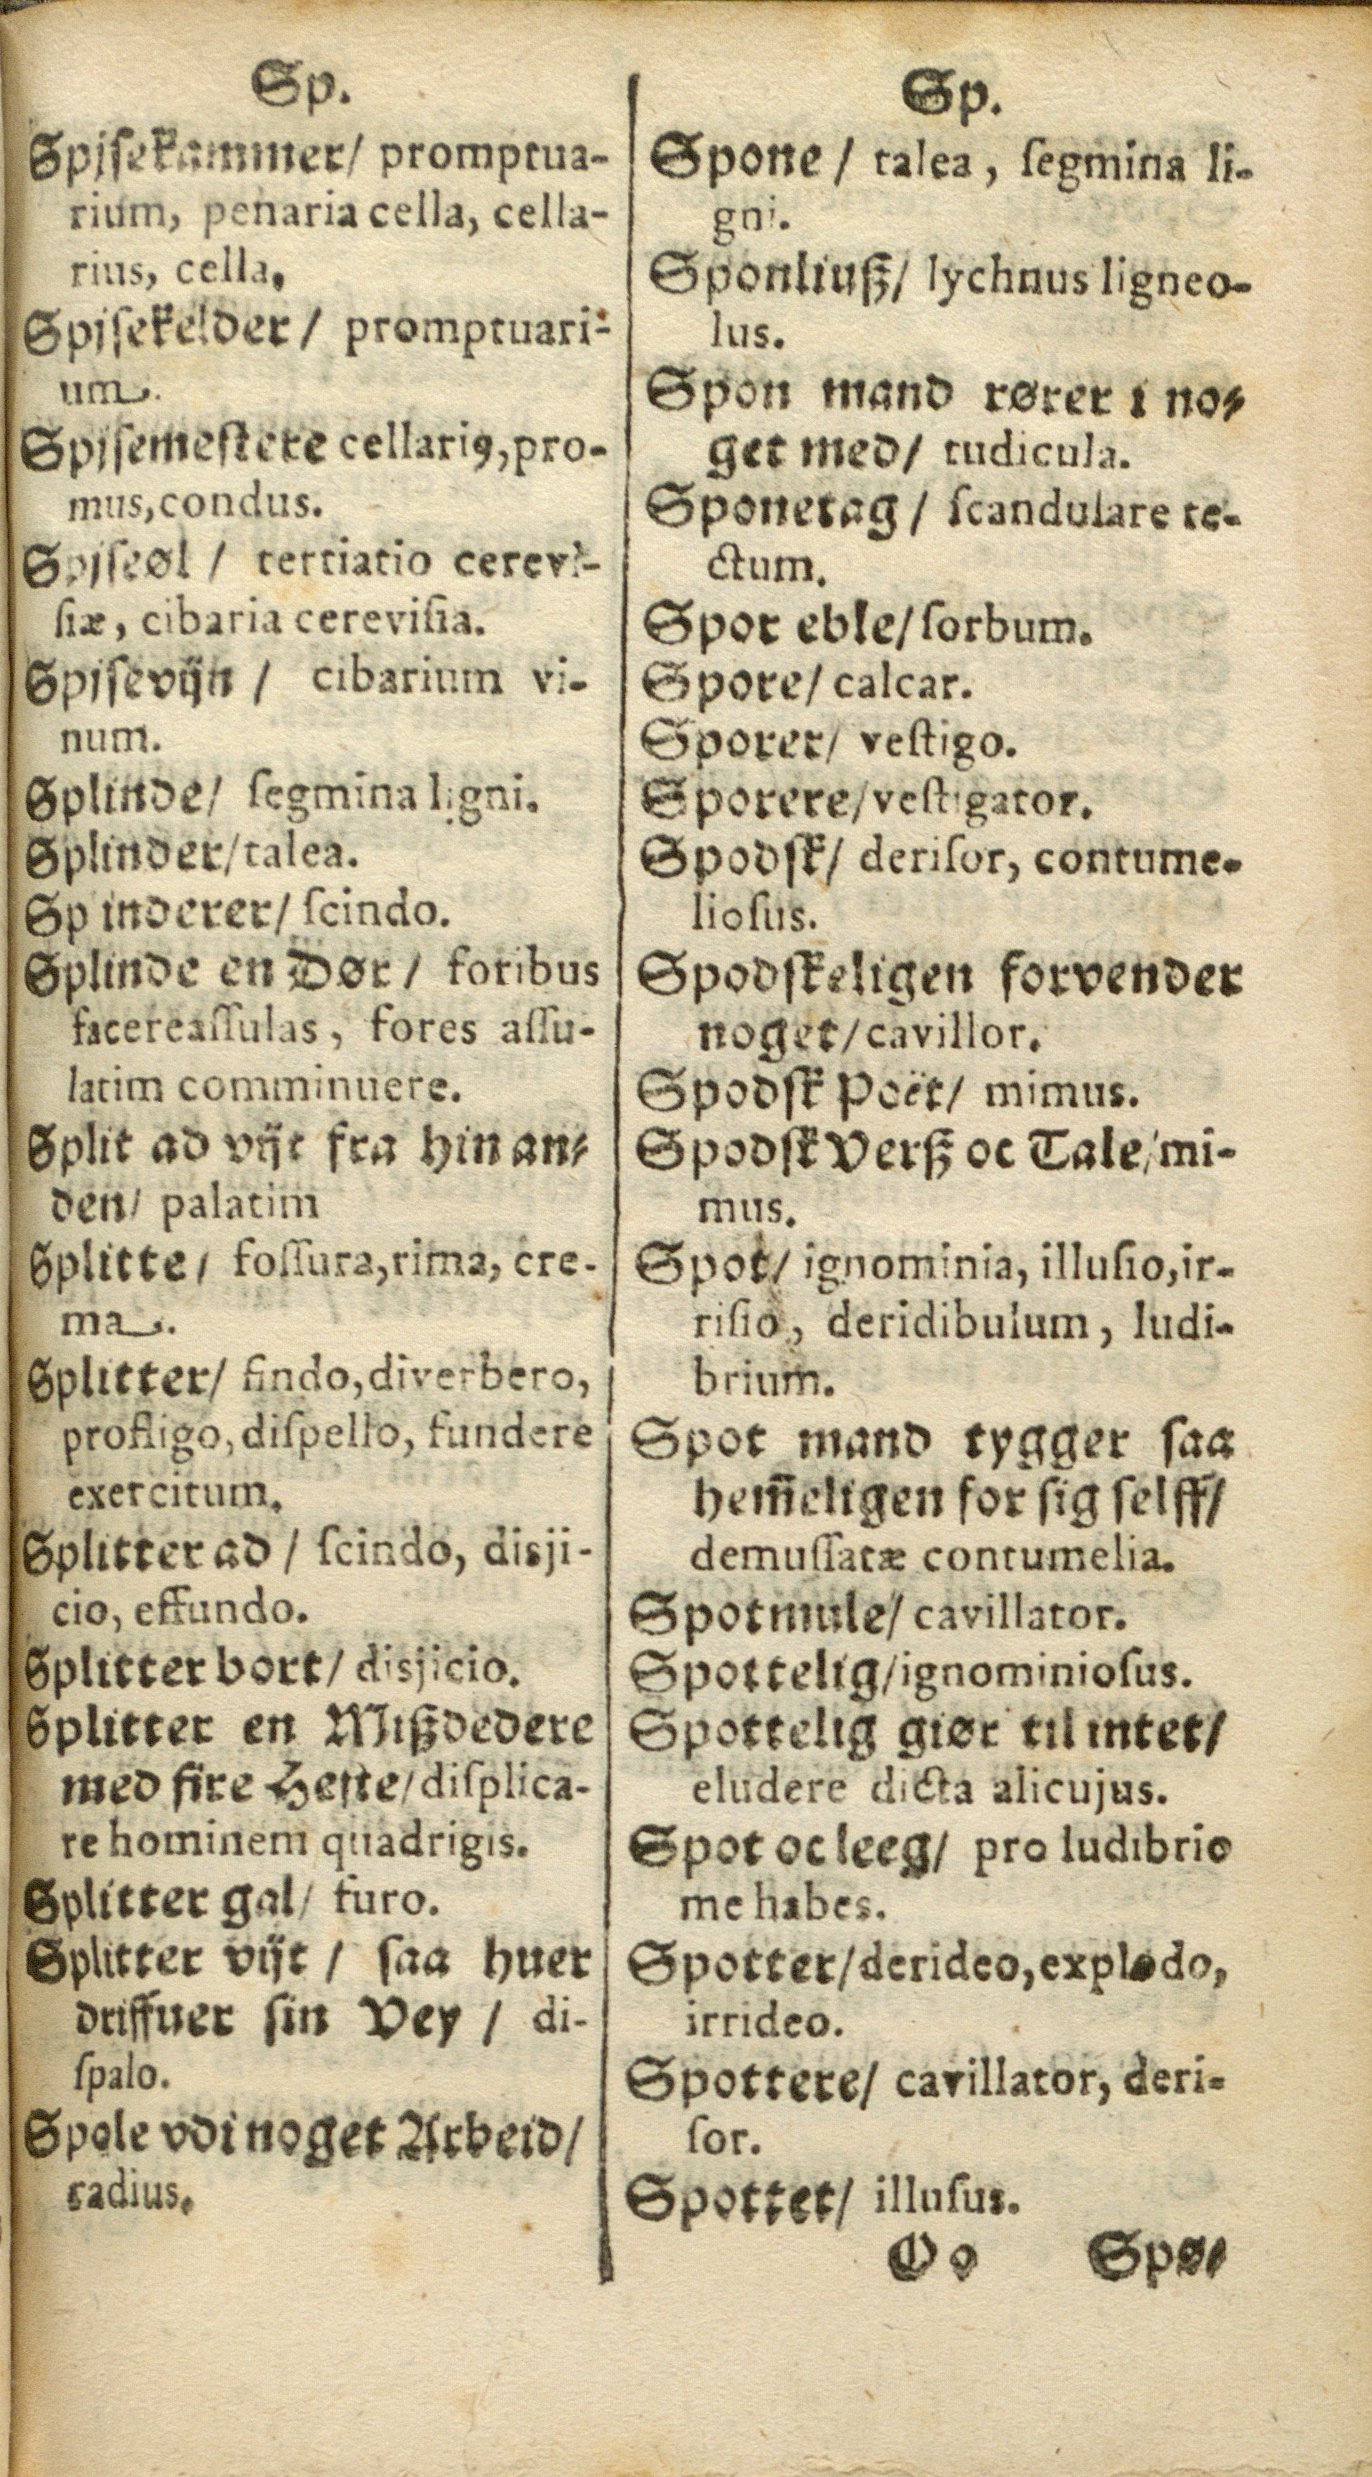 Sp.
Spjſekammer/ promptua-
rium, penaria cella, cella-
rius, cella,
Spjſekelder / promptuari-
um.
Spjſemeſtere cellariꝰ, pro-
mus, condus.
Spjſeøl / tertiatio cerevi-
ſiæ, cibaria cereviſia.
Spjſevijn / cibarium vi-
num.
Splinde/ ſegmina ligni.
Splinder/ talea.
Sp inderer/ ſcindo.
Splinde en Dør / foribus
facereaſſulas, fores aſſu-
latim comminuere.
Split ad vijt fra hin an-
den/ palatim
Splitte / foſſura, rima, cre-
ma.
Splitter/ findo, diverbero,
profligo, diſpello, fundere
exercitum.
Splitter ad / ſcindo, disji-
cio, effundo.
Splitter bort/ disjicio.
Splitter en Mißdedere
med fire Heſte/ diſplica-
re hominem quadrigis.
Splitter gal/ furo.
Splitter vijt / ſaa huer
driffuer ſin Vey / di-
ſpalo.
Spole vdi noget Arbeid/
radius.
Sp.
Spone / talea, ſegmina li-
gni.
Sponliuß/ lychnus ligneo-
lus.
Spon mand rører i no-
get med/ tudicula.
Sponetag / ſcandulare te-
ctum.
Spor eble/ ſorbum.
Spore/ calcar.
Sporer/ veſtigo.
Sporere/ veſtigator.
Spodſk/ deriſor, contume-
lioſus.
Spodſkeligen forvender
noget/ cavillor.
Spodſk Poët/ mimus.
Spodſk Verß oc Tale/ mi-
mus.
Spot/ ignominia, illuſio, ir-
riſio, deridibulum, ludi-
brium.
Spot mand tygger ſaa
hem̄eligen for ſig ſelff/
demuſſatæ contumelia.
Spotmule/ cavillator.
Spottelig/ ignominioſus.
Spottelig giør til intet/
eludere dicta alicujus.
Spot oc leeg/ pro ludibrio
me habes.
Spotter/ derideo, explodo,
irrideo.
Spottere/ cavillator, deri-
ſor.
Spottet/ illuſus.
Oo Spø-